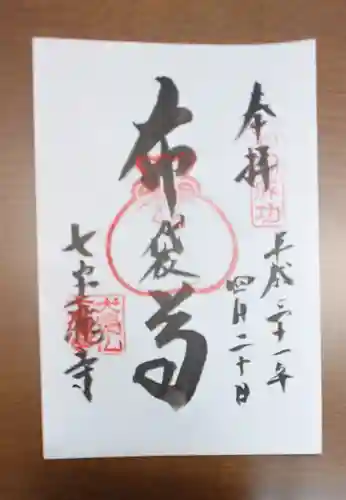 奉拝
平成二十一年
四月二十日
布袋尊
七宝瀧寺